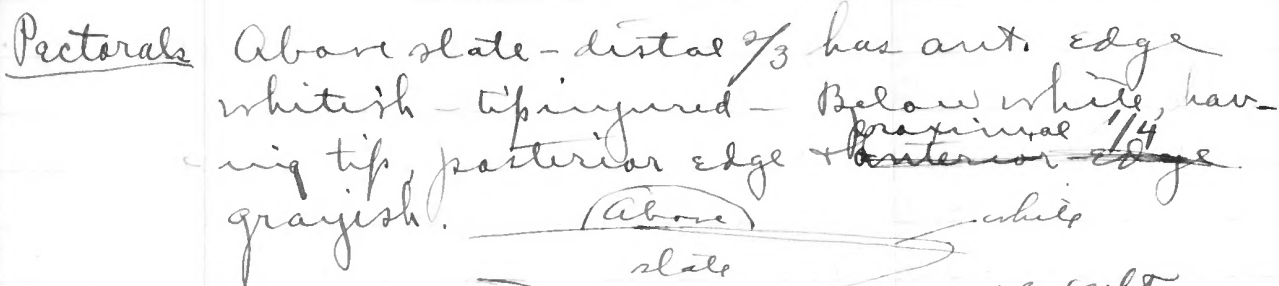 Pectorals Above slate - distal 2/3 has ant. edge
whitish - tip injured - Below white, hav-
proximal 1/4
ing tip, posterior edge + anterior edge
grayish.
Above
white
slate